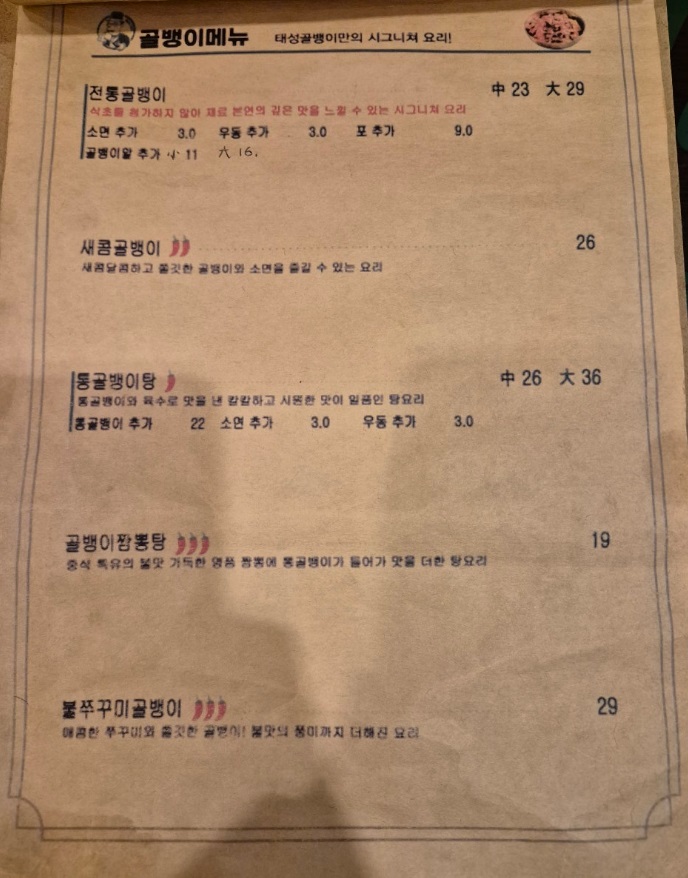 골뱅이메뉴 태성골뱅이만의 시그니쳐 요리!
전통골뱅이 中 23 大 29
식초를 첨가하지 않아 재료 본연의 깊은 맛을 느낄 수 있는 시그니쳐 요리
소면 추가 3.0 우동 추가 3.0 포 추가 9.0
골뱅이알 추가 小 11 大 16.
새콤골뱅이 26
새콤달콤하고 쫄깃한 골뱅이와 소면을 즐길 수 있는 요리
통골뱅이탕 中 26 大 36
통골뱅이와 육수로 맛을 낸 칼칼하고 시원한 맛이 일품인 탕요리
통골뱅이 추가 22 소면 추가 3.0 우동 추가 3.0
골뱅이짬뽕탕 19
중식 특유의 불맛 가득한 명품 짬뽕에 통골뱅이가 들어가 맛을 더한 탕요리
불쭈꾸미골뱅이 29
매콤한 쭈꾸미와 쫄깃한 골뱅이! 불맛의 풍미까지 더해진 요리